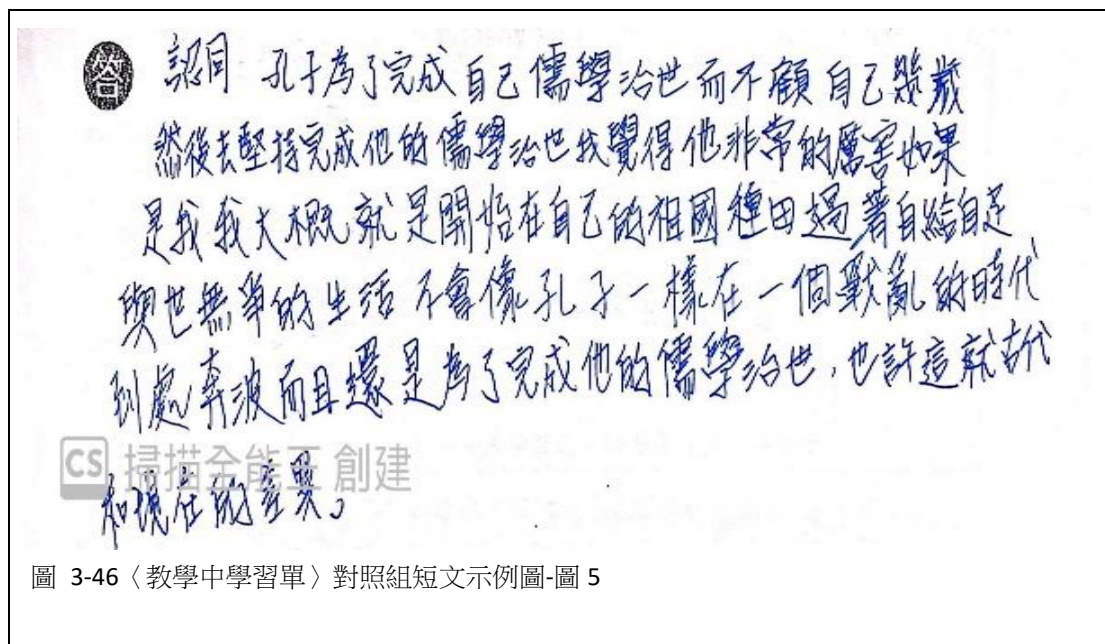 答 認同 孔子為了完成自己儒學治世而不顧自己幾歲
然後去堅持完成他的儒學治世我覺得他非常的厲害如果
是我我大概就是開始在自己的祖國種田過著自給自足
與世無爭的生活 不會像孔子一樣在一個戰亂的時代
到處奔波而且還是為了完成他的儒學治世，也許這就古代
CS 掃描全能王 創建
和現在的差異。
圖 3-46〈教學中學習單〉對照組短文示例圖-圖 5